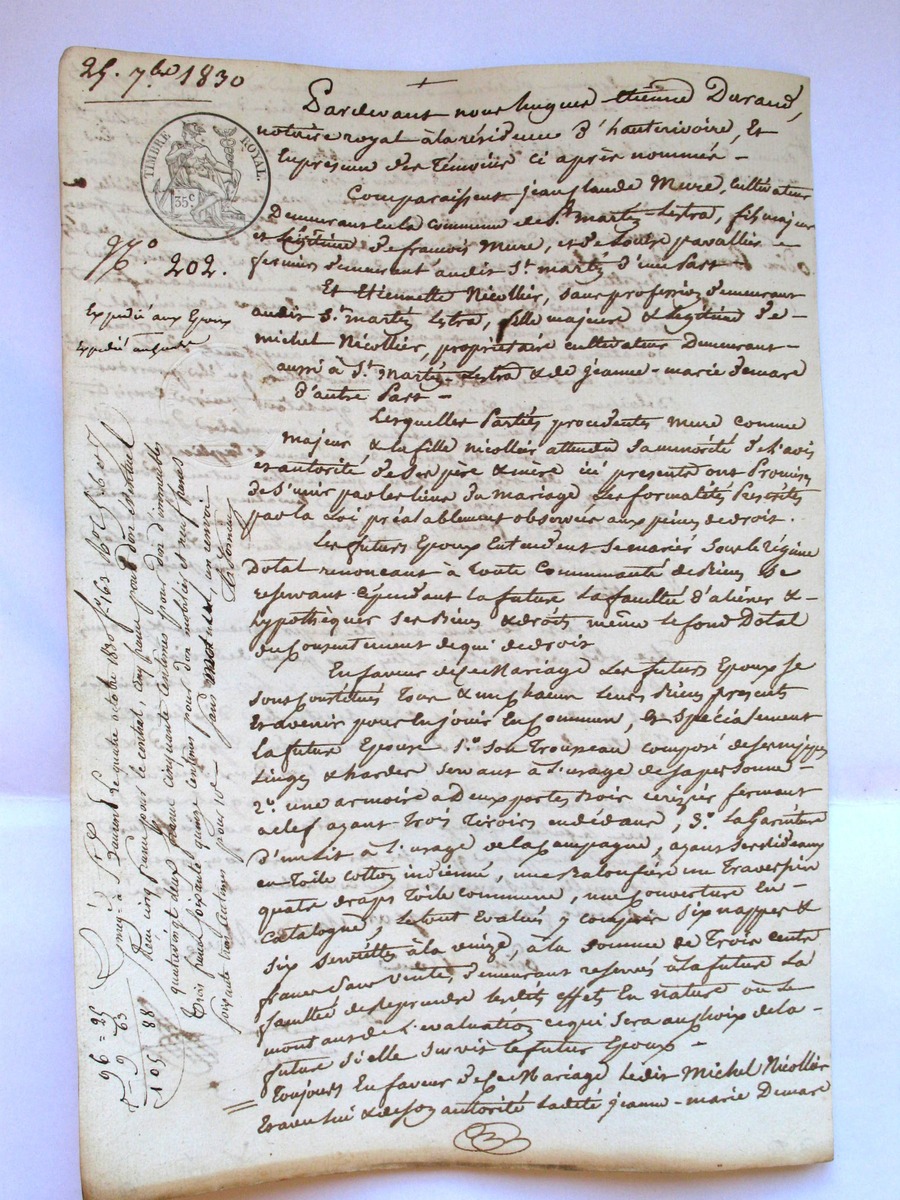 25. 7bre 1830
TIMBRE ROYAL
35 c
No. 202.
Expédié aux Epoux
Expédié
Pardevant nous hugues etienne Durand,
notaire royal à la résidence d'hauterivoire, Et
En présence des Témoins ci après nommés -
Comparaissent jean Claude Mure, Cultivateur
Demeurant en la commune de St. martin Lestra, fils majeur
et légitime de francois Mure, et de
fermiers demeurant audit St. martin d'une Part -
Et Etiennette Nicollier, sans profession demeurant
audit St. martin Lestra, fille majeure & légitime de
michel Nicollier, propriétaire cultivateur Demeurant
aussi à St. martin Lestra & de jeanne-marie demare
d'autre Part -
Lesquelles Parties procédentes mure comme
majeur & la fille nicollier attendu sa minorité de l'avis
et autorité de ses père & mère ici présents ont Promis
de s'unir par les liens du mariage Les formalités Prescrites
par la Loi préalablement observées aux peines de droit.
Les futurs Epoux Entendent se mariés sous le Régime
Dotal renoncant à toute Communauté de Biens Se
reservant cependant la future La faculté d'aliéner &
hypothéquer ses Biens & droits même le fond Dotal
du Consentement de qui de droit
En faveur de ce Mariage Les futurs Epoux se
sont Constitués Tous & un chacun Leurs Biens présents
Et avenir pour En jouir En Commun, Et Spécialement
La future Epouse 1.o Son Trousseau composé de ses nippes
Linges & hardes servant à l'usage de sa personne -
2.o une armoire à Deux portes Bois cerizier fermant
à clef ayant Trois Tiroirs en dedans, 3.o La Garniture
d'un lit à l'usage de la Campagne, ayant ses rideaux
en Toile cotton indienne, une Balouffière un Traverssin
quatre draps Toile commune, une Couverture En
Catalogne, Le tout Evalué y compris Six nappes &
Six Serviettes à la venize, à la somme de Trois cents
francs Sans ventes demeurant reservés à la future La
faculté de reprendre lesdits effets En nature ou le
montant de l'évaluation ce qui sera au choix de la
future si elle survit le futur Epoux -
Toujours En faveur de ce Mariage ledit Michel Nicollier
Et avec lui & de son autorité ladite jeanne-marie Demare
Enreg. à St. Laurent le quatre octobre 1830 fo. 163
Reçu cinq francs pour le contrat, cinq francs pour don éventuel
quatrevingt deux francs cinquante centimes pour don d'immeubles
Trois francs soixante quinze centimes pour don mobilier et neuf francs
soixante trois centimes pour 10e sans un renvoi
96 = 25
9 63
105 88